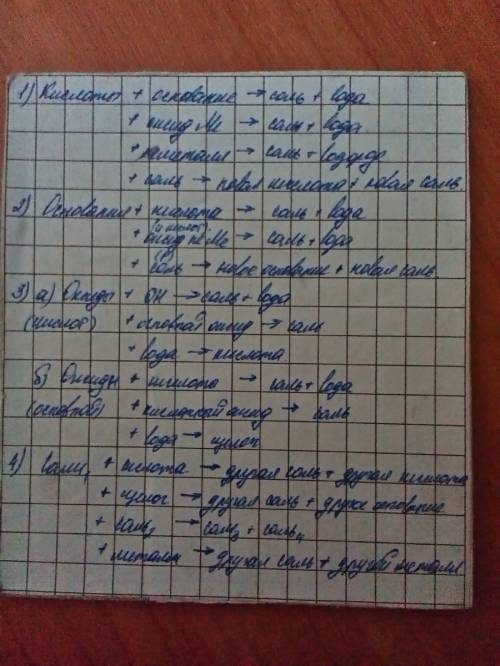 1) Кислоты + основание → соль + вода
+ оксид Ме → соль + вода
+ металл → соль + водород
+ соль → новая кислота + новая соль.
2) Основания + кислота → соль + вода
(кислот)
+ оксид не Ме → соль + вода
(р)
+ соль → новое основание + новая соль.
3) а) Оксиды + ОН → соль + вода
(кислот) + основной оксид → соль
+ вода → кислота
б) Оксиды + кислота → соль + вода
(основной) + кислотный оксид → соль
+ вода → щелоч
4) Соли₁ + кислота → другая соль + другая кислота
+ щелоч → другая соль + другое основание
+ соль₂ → соль₃ + соль₄
+ металлы → другая соль + другой металл